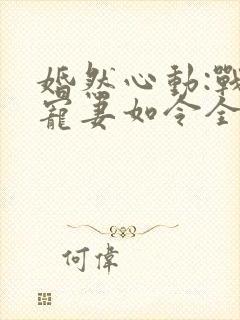 婚然心動:戰
寵妻如令全
何偉